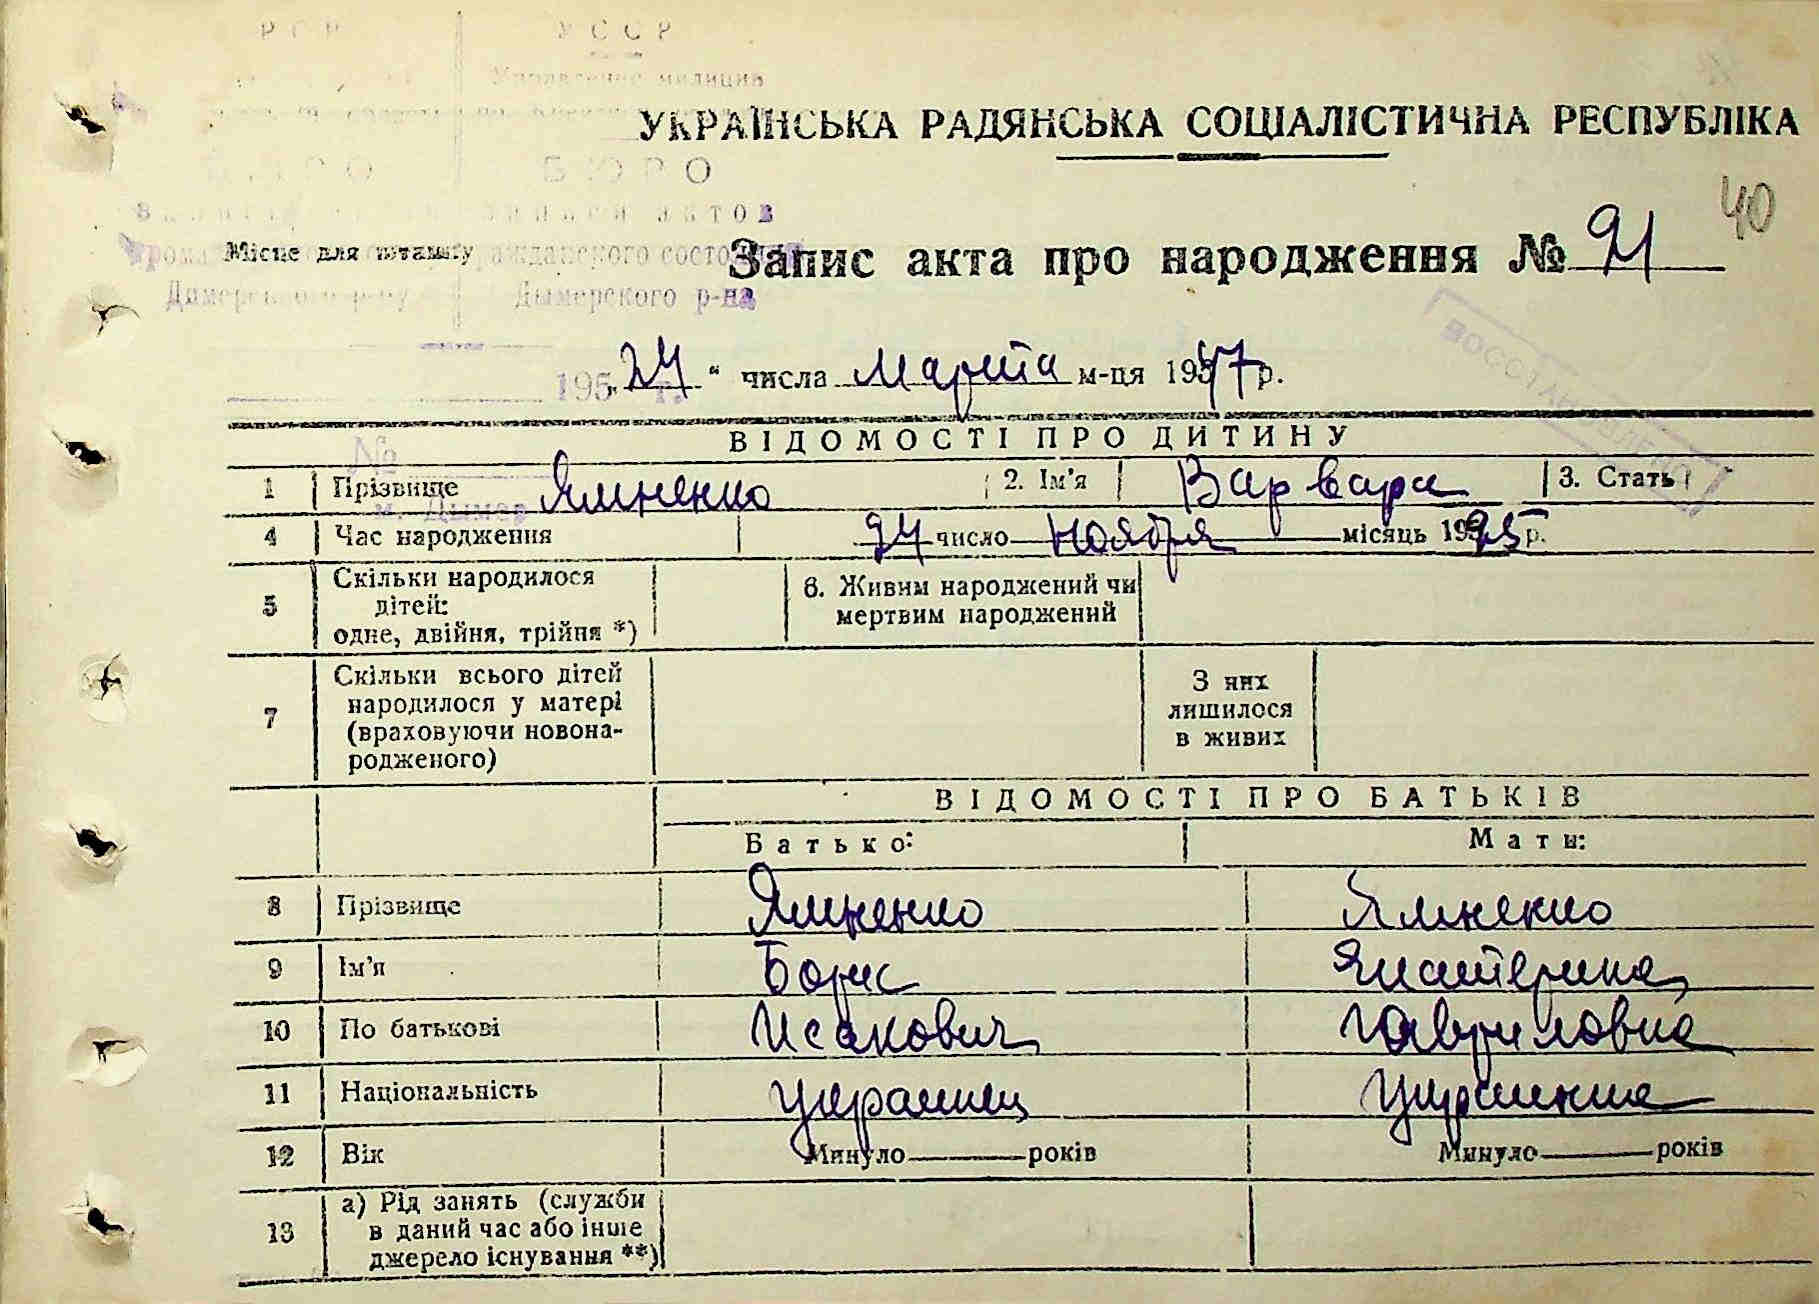 УССР
Управление милиции
БЮРО
актов
гражданского состояния
Димерського р-ну Дымерского р-на
195 г.
№
м. Дымер
УКРАЇНСЬКА РАДЯНСЬКА СОЦІАЛІСТИЧНА РЕСПУБЛІКА
40
Місце для штампу
Запис акта про народження № 21
„24“ числа Марта м-ця 1957 р.
ВОССТАНОВЛЕНО
ВІДОМОСТІ ПРО ДИТИНУ
1 Прізвище Ямненко 2. Ім'я Варвара 3. Стать
4 Час народження 24 число ноября місяць 1925 р.
5 Скільки народилося дітей: одне, двійня, трійня *) 6. Живим народжений чи мертвим народжений
7 Скільки всього дітей народилося у матері (враховуючи новонародженого) З них лишилося в живих
ВІДОМОСТІ ПРО БАТЬКІВ
Батько: Мати:
8 Прізвище Ямненко Ямненко
9 Ім'я Борис Екатерина
10 По батькові Исакович Гавриловна
11 Національність украинец украинка
12 Вік Минуло років Минуло років
13 а) Рід занять (служби в даний час або інше джерело існування **)